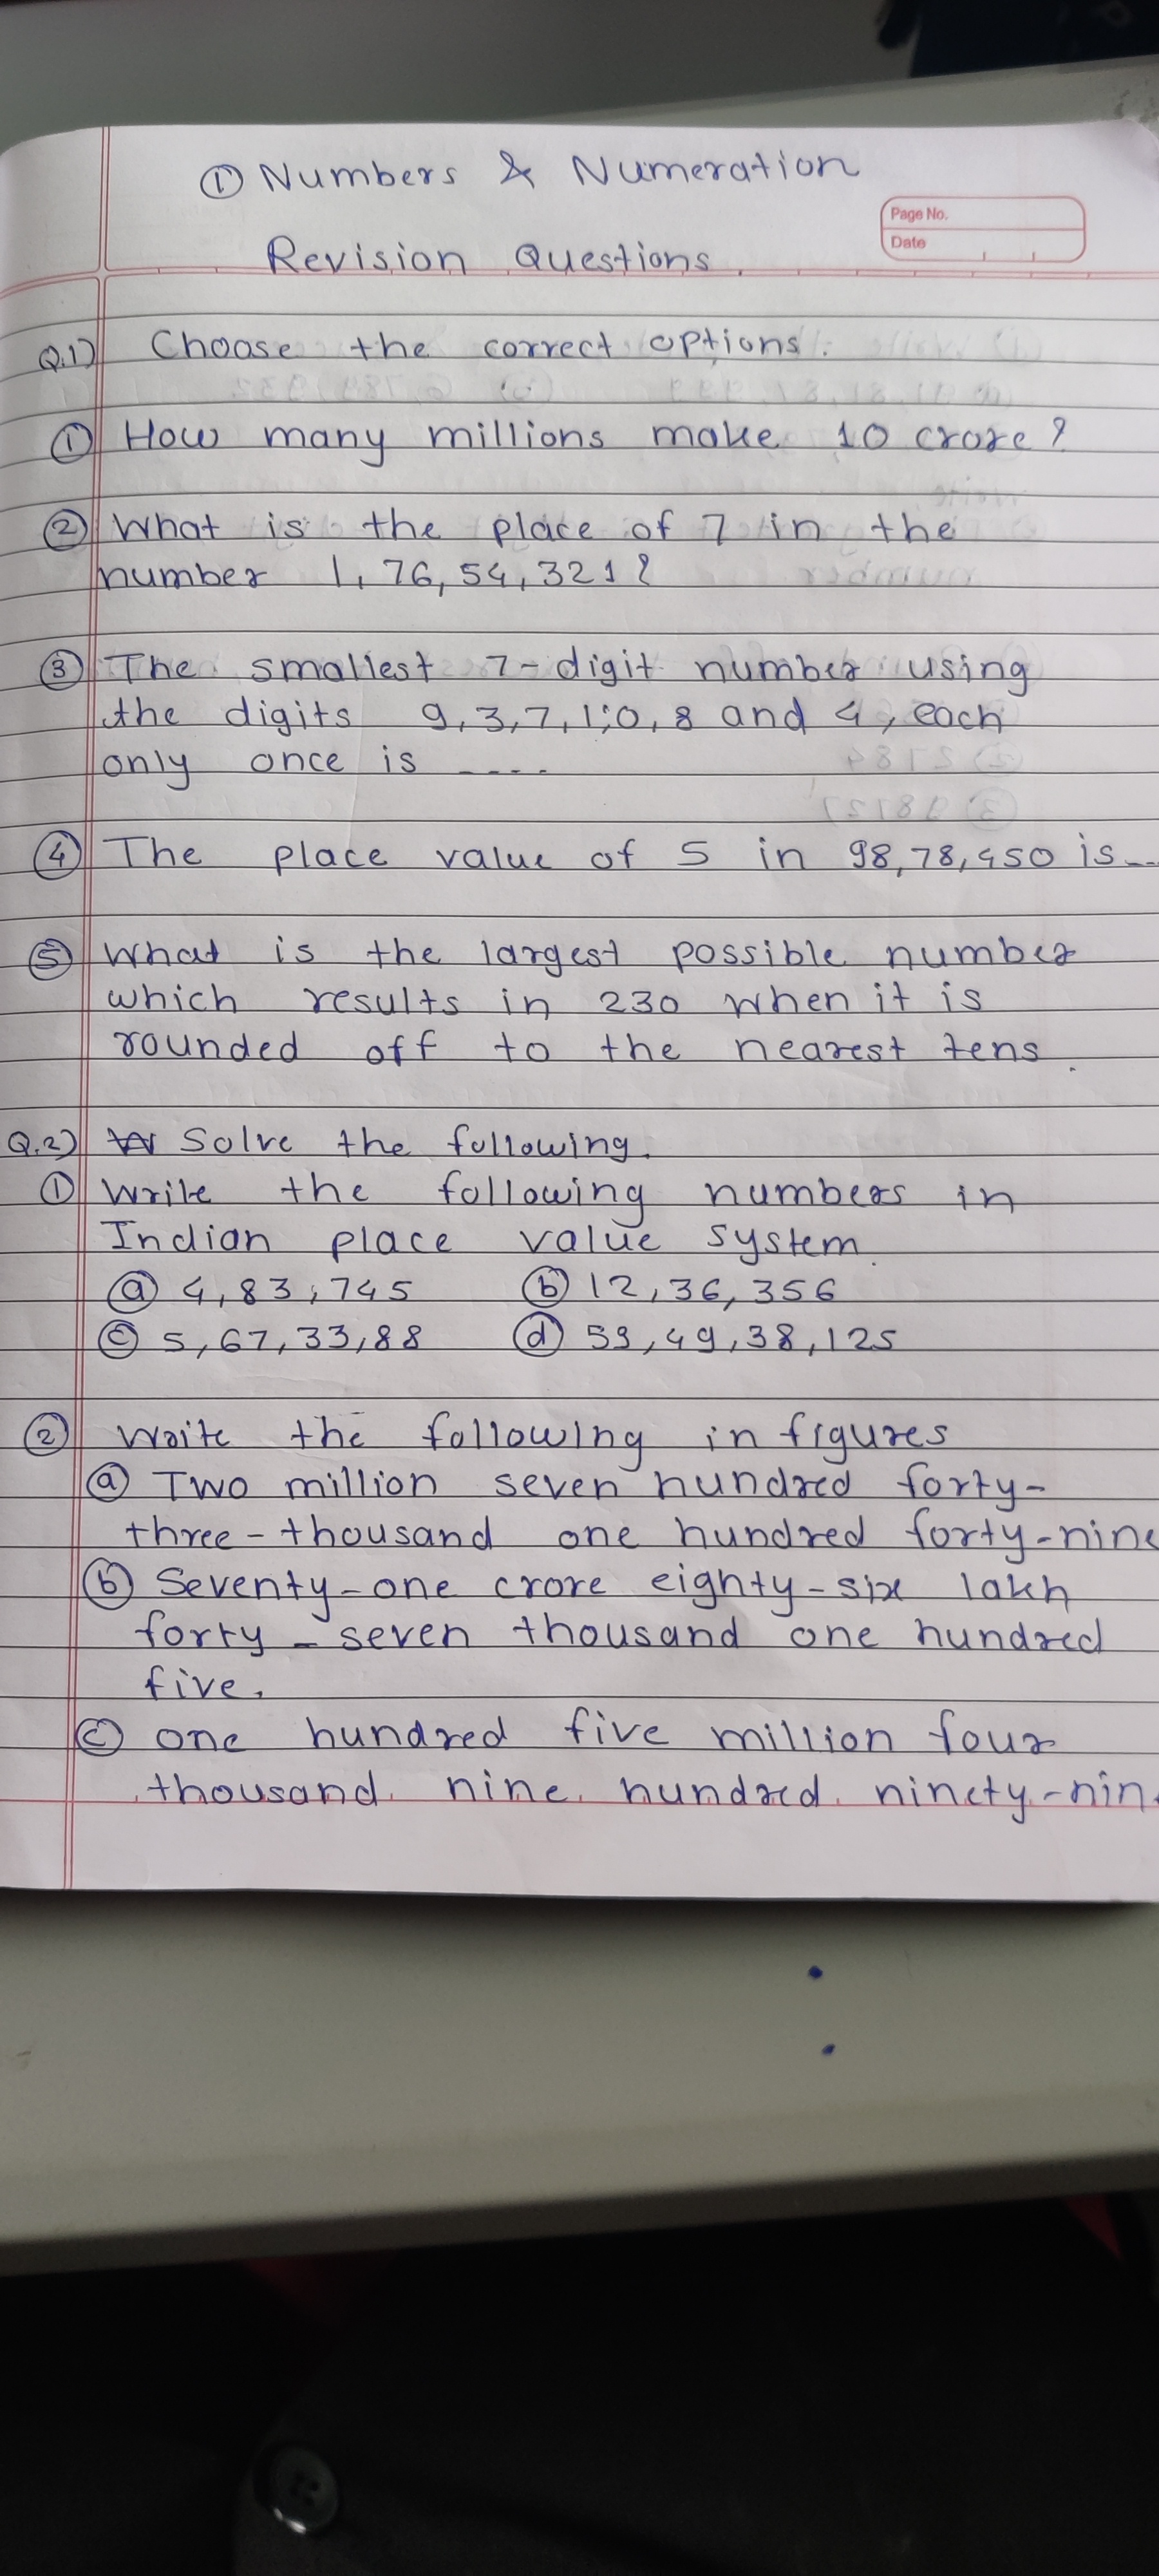 ① Numbers & Numeration
Page No.
Date
Revision Questions.
Q.1) Choose the correct options.
① How many millions make 10 crore?
② What is the place of 7 in the
number 1,76,54,321?
③ The smallest 7-digit number using
the digits 9,3,7,1,0,8 and 4, each
only once is ----
④ The place value of 5 in 98,78,450 is --
⑤ What is the largest possible number
which results in 230 when it is
rounded off to the nearest tens.
Q.2) Solve the following.
① Write the following numbers in
Indian place value system.
ⓐ 4,83,745 ⓑ 12,36,356
ⓒ 5,67,33,88 ⓓ 59,49,38,125
② Write the following in figures
ⓐ Two million seven hundred forty-
three-thousand one hundred forty-nine
ⓑ Seventy-one crore eighty-six lakh
forty-seven thousand one hundred
five.
ⓒ one hundred five million four
thousand nine hundred ninety-nin